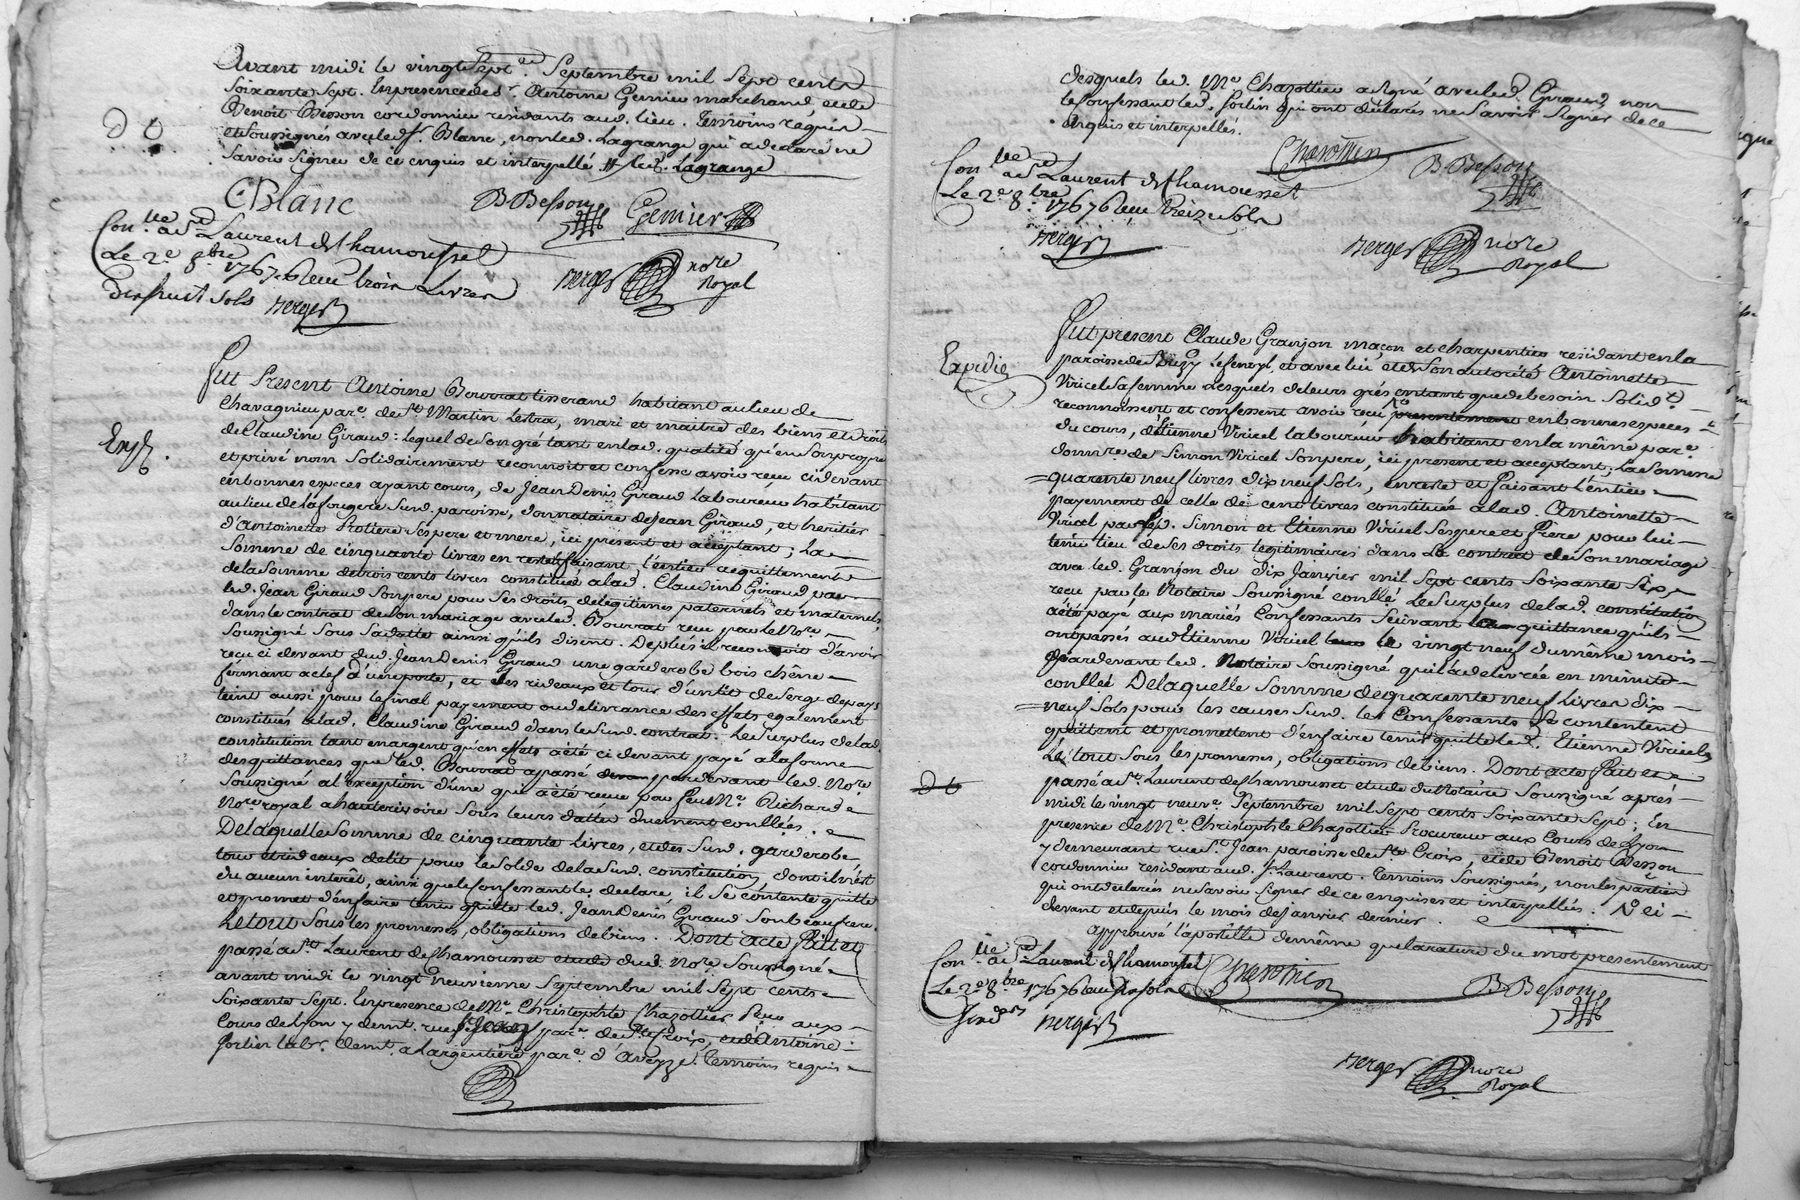 Avant midi le vingt Sept.e Septembre mil Sept cents
Soixante Sept. En presence de Sr. Antoine Gemier marchand et de
Benoit Besson cordonnier residants aud. lieu. Temoins requis
et Soussignés avec led. Sr. Blanc, non led. Lagrange qui a declaré ne
Savoir Signer de ce enquis et interpellé # led. Lagrange
d t
CBlanc
B Besson
Gemier
Con.lle ad St Laurent de Chamousset
Le 2e 8bre 1767 reçu trois Livres
dixhuit sols Berger
Berger nore
Royal
Fut Present Antoine Bourrat tisserand habitant au lieu de
Chavagnieu par.e de St. Martin Lestra, mari et maitre des biens et droits
de Claudine Giraud : lequel de Son gré tant en lad. qualité qu'en Son propre
et privé nom Solidairement reconnoit et confesse avoir reçu cidevant
en bonnes especes ayant cours, de Jean Denis Giraud Laboureur habitant
au lieu de Lafougere Susd. paroisse, donnataire de Jean Giraud, et heritier
d'Antoinette Protiere Ses pere et mere, ici present et acceptant ; La
Somme de cinquante livres en reste et faisant l'entier acquittement
de la Somme de trois cents livres constituée a lad. Claudine Giraud par
led. Jean Giraud Son pere pour Ses droits de legitimes paternels et maternels,
dans le contrat de Son mariage avec led. Bourrat reçu par le Nore
Soussigné Sous Sa datte ainsi qu'ils disent. De plus il reconnoit d'avoir
reçu ci devant dud. Jean Denis Giraud une garderobe bois chêne
fermant a clef d'une porte, et des rideaux et tour d'un lit de Serge de pays
teint aussi pour le final payement ou delivrance des effets egalement
constitués a lad. Claudine Giraud dans le Susd. contrat. Le Surplus de lad.
constitution tant en argent qu'en effets a été ci devant payé a la forme
des quittances que led. Bourrat a passé pardevant led. Nore
Soussigné a l'exception d'une qui a été recue par feu Me. Richard
Nore royal a hauterivoire Sous leurs dattes duement conllées.
De laquelle Somme de cinquante Livres, et des Susd. garderobe
tour et rideaux de lit pour le Solde de la Susd. constitution dont il n'est
du aucun interêt, ainsi que le confessant le declare il Se contente quitte
et promet d'en faire tenir quitte led. Jean Denis Giraud Son beaufrere.
Le tout Sous les promesses, obligations de biens. Dont acte Fait et
passé a St. Laurent de Chamousset etude dud. Nore Soussigné
avant midi le vingt neuvieme Septembre mil Sept cents
Soixante Sept. En presence de Me. Christophle Chazottier Pcur aux
Cours de Lyon y demt. rue St Jean par.e de Ste Croix, et de Antoine
Fortier labr. demt. a Largentiere par.e d'Aveyze. Temoins requis
desquels led. Me Chazottier a Signé avec led. Giraud, non
le confessant led. Fortier qui ont declarés ne Savoir Signer de ce
enquis et interpellés.
Chazottier
B Besson
Con.lle ad St Laurent de Chamousset
Le 2e 8bre 1767 reçu treize Sols
Berger
Berger nore
Royal
Expedié
Fut present Claude Granjon maçon et charpentier residant en la
paroisse de Duzy et avec lui et de Son autorité Antoinette
Viricel Sa femme Lesquels de leurs grés entant que de besoin Solidt.
reconnoissent et confessent avoir reçu presentement en bonnes especes
du cours, d'Etienne Viricel laboureur habitant en la même par.e
donnre. de Simon Viricel Son pere, ici present et acceptant, La Somme
quarente neuf livres dix neuf Sols, en reste et faisant l'entier
payement de celle de cent livres constituée a lad. Antoinette
Viricel par led. Simon et Etienne Viricel Ses pere et frere pour lui
tenir lieu de Ses droits legitimaires dans Le contrat de Son mariage
avec led. Granjon du dix Janvier mil Sept cents Soixante Six,
reçu par le Notaire Soussigné conllé Le Surplus de lad. constitution
a été payé aux mariés Confessants Suivant quittance qu'ils
ont passés aud. Etienne Viricel le vingt neuf du même mois
pardevant led. Notaire Soussigné qui l'a delivrée en minute
conllée De laquelle Somme de quarente neuf Livres dix
neuf Sols pour les causes Susd. les Confessants Se contentent
quittent et promettent d'en faire tenir quitte led. Etienne Viricel,
Le tout Sous les promesses, obligations de biens. Dont acte Fait et
passé a St. Laurent de Chamousset etude du Notaire Soussigné aprés
midi le vingt neuve. Septembre mil Sept cents Soixante Sept ; En
presence de Me. Christophle Chazottier Procureur aux Cours de Lyon
y demeurant rue St Jean paroisse de Ste Croix, et de Benoit Besson
cordonnier residant aud. St. Laurent. Temoins Soussignés, non les parties
qui ont declarés ne Savoir Signer de ce enquises et interpellés.
devant et depuis le mois de Janvier dernier.
approuvé l'apostille de même que la rature du mot presentement
d t
Con.lle ad St Laurent de Chamousset
Le 2e 8bre 1767 reçu
Berger
Chazottier
B Besson
Berger nore
Royal